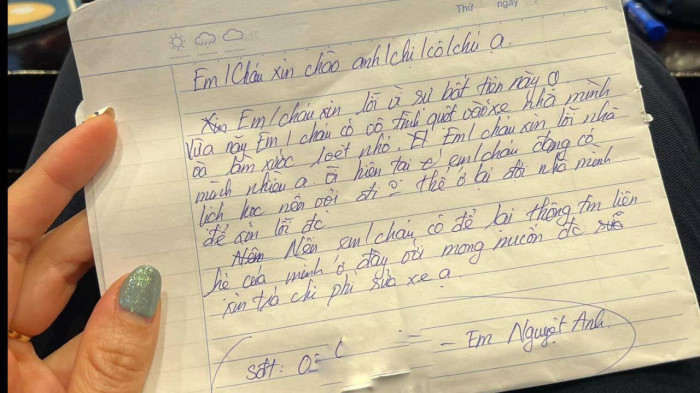 Thứ ngày
Em/Cháu xin chào anh/chị/cô/chú ạ.
Em/cháu xin lỗi vì sự bất tiện này ạ
Vừa nãy Em/cháu có vô tình quệt vào xe nhà mình
và làm xước loẹt nhỏ. Em/cháu xin lỗi nhà
mình nhiều ạ. Vì hiện tại em/cháu đang có
lịch học nên vội đi thể ở lại đợi nhà mình
để xin lỗi đc
Nên em/cháu có để lại thông tin liên
hệ của mình ở đây với mong muốn đc
xin trả chi phí sửa xe ạ
sđt: 0
- Em Nguyệt Anh.